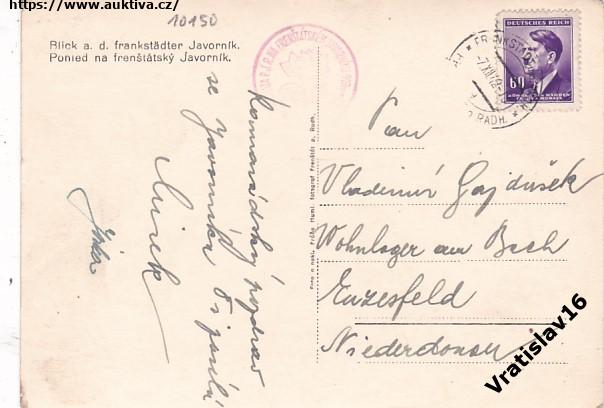 https://www.auktiva.cz/
10150
Blick a. d. frankstädter Javorník.
Pohled na frenštátský Javorník.
DEUTSCHES REICH
60
BÖHMEN UND MÄHREN
ČECHY A MORAVA
Kamarádský pozdrav
se Javorníku Ti posílá
Mirek
Pan
Vladimír Gajdušek
Wohnlager am Bach
Enzesfeld
Niederdonau
Vratislav16